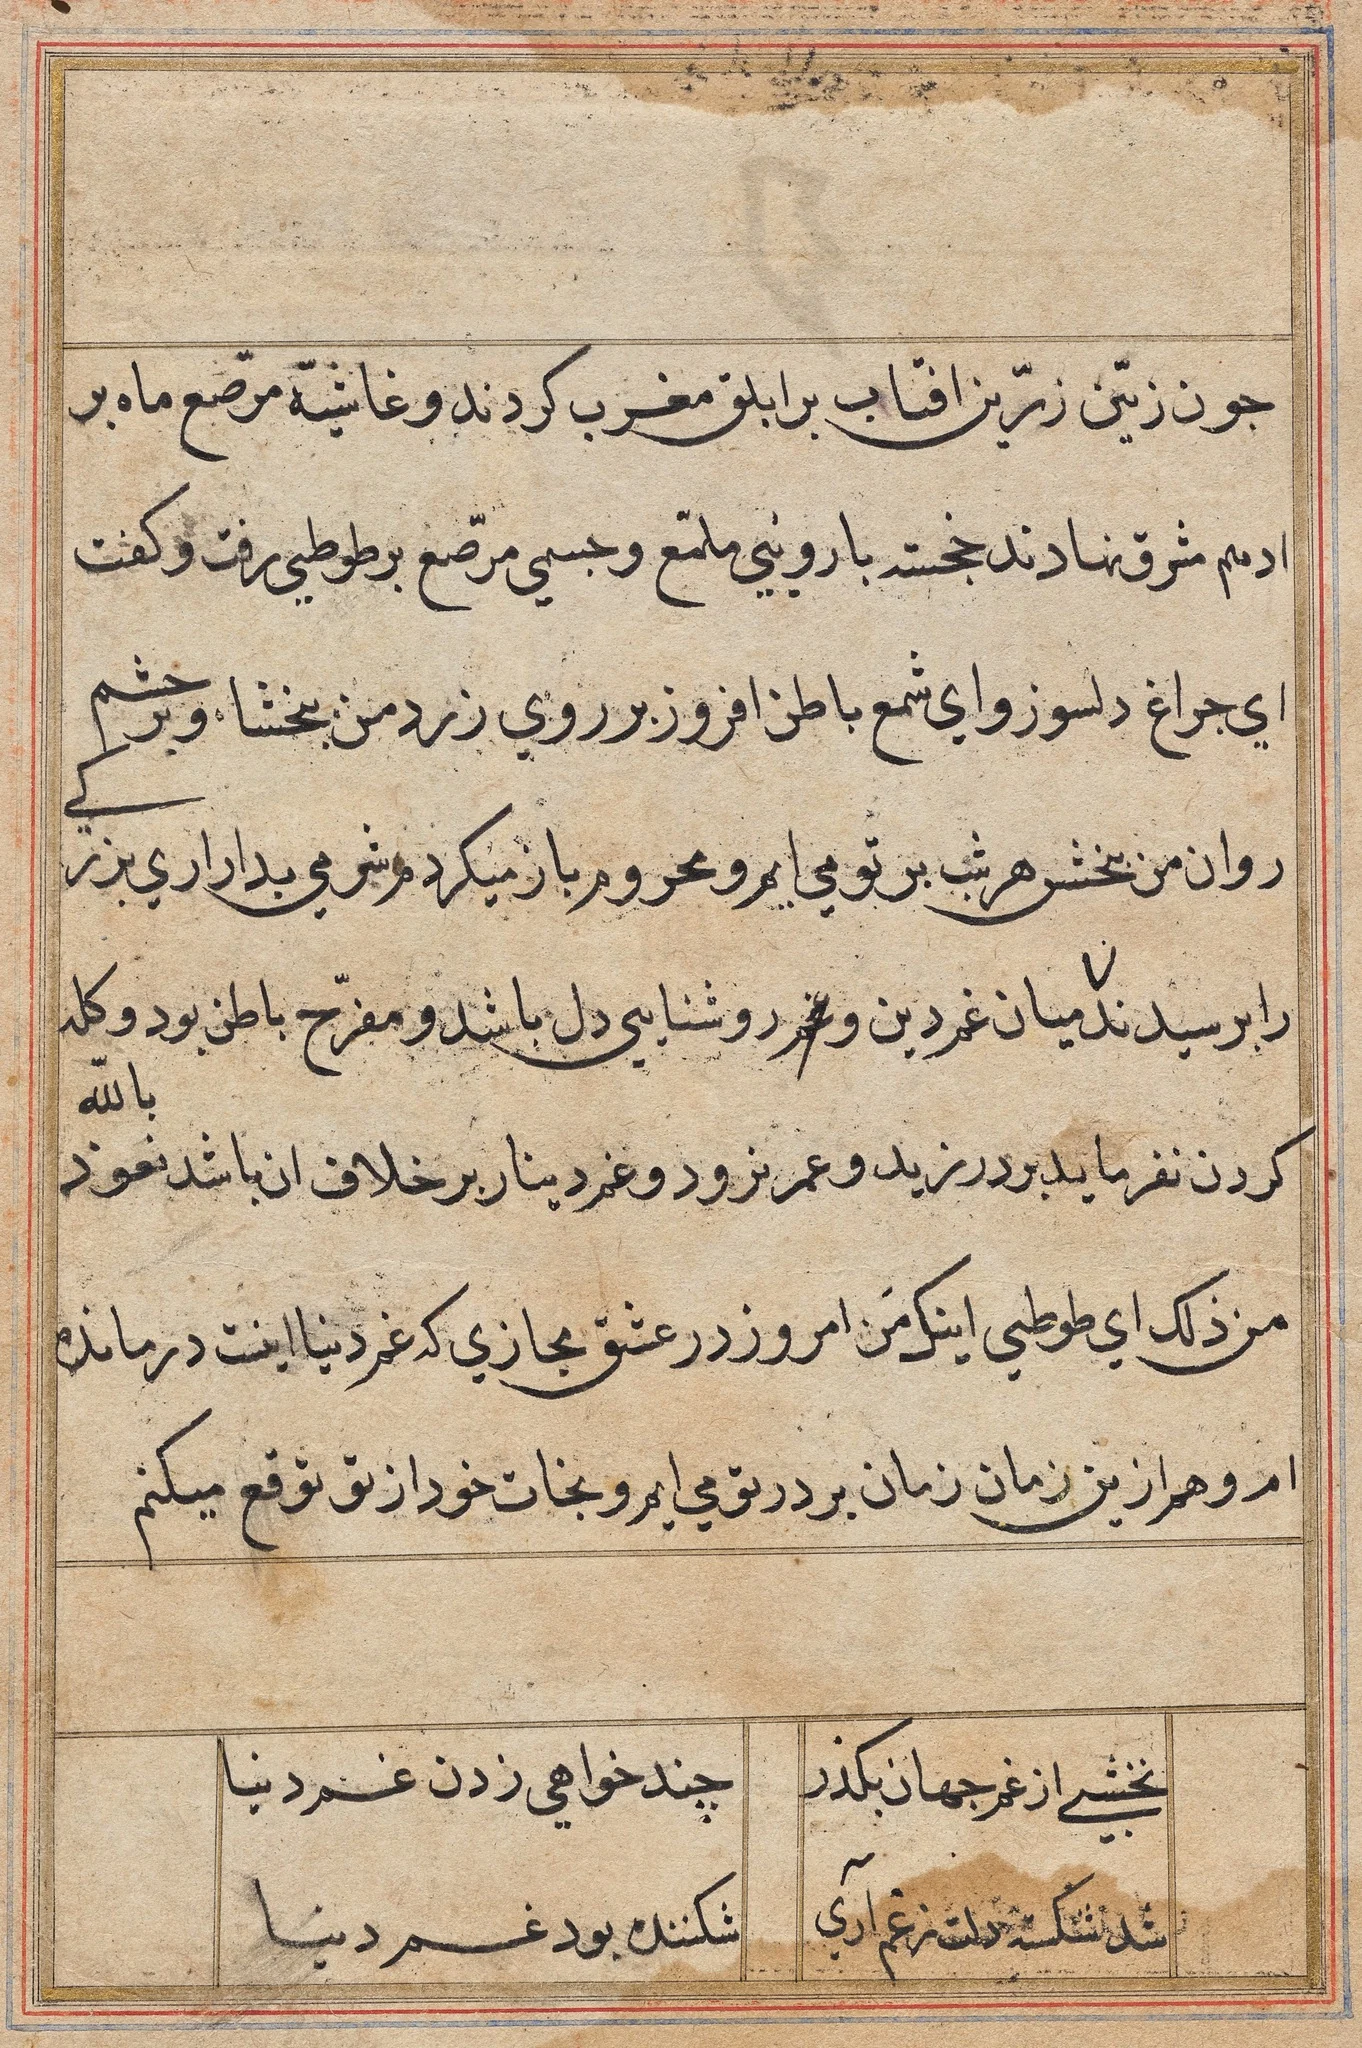 جون زین زرّین افتاب بر ابلق مغرب کردند و غاشیهٔ مرّصع ماه بر
ادهم مشرق نهادند خجسته با رویی ملمّع و جسمی مرّصع بر طوطی رفت و کفت
ای جراغ دلسوز و ای شمع باطن افروز بر روی زرد من ببخشاء و بر جشم
روان من ببخش هر شب بر تو می ایم و محروم باز میکردم شرمی بدار ای بزرکی
را برسیدند میان غم دین و روشنایی دل باشد و مفرّح باطن بود و کله
کردن نفرماید بر در نزید و عمر نرود و غم دینار بر خلاف ان باشد نعوذ بالله
من ذلک ای طوطی اینک من امروز در عشق مجازی که غم دنیا اینست در مانده
ام و هم ازین زمان زمان بر در تو می ایم و نجات خود از تو توقع میکنم
نخشبی از غم جهان بکذر چند خواهی زدن غم دنیا
شد شکسته دلت ز غم آری شکننده بود غم دنیا